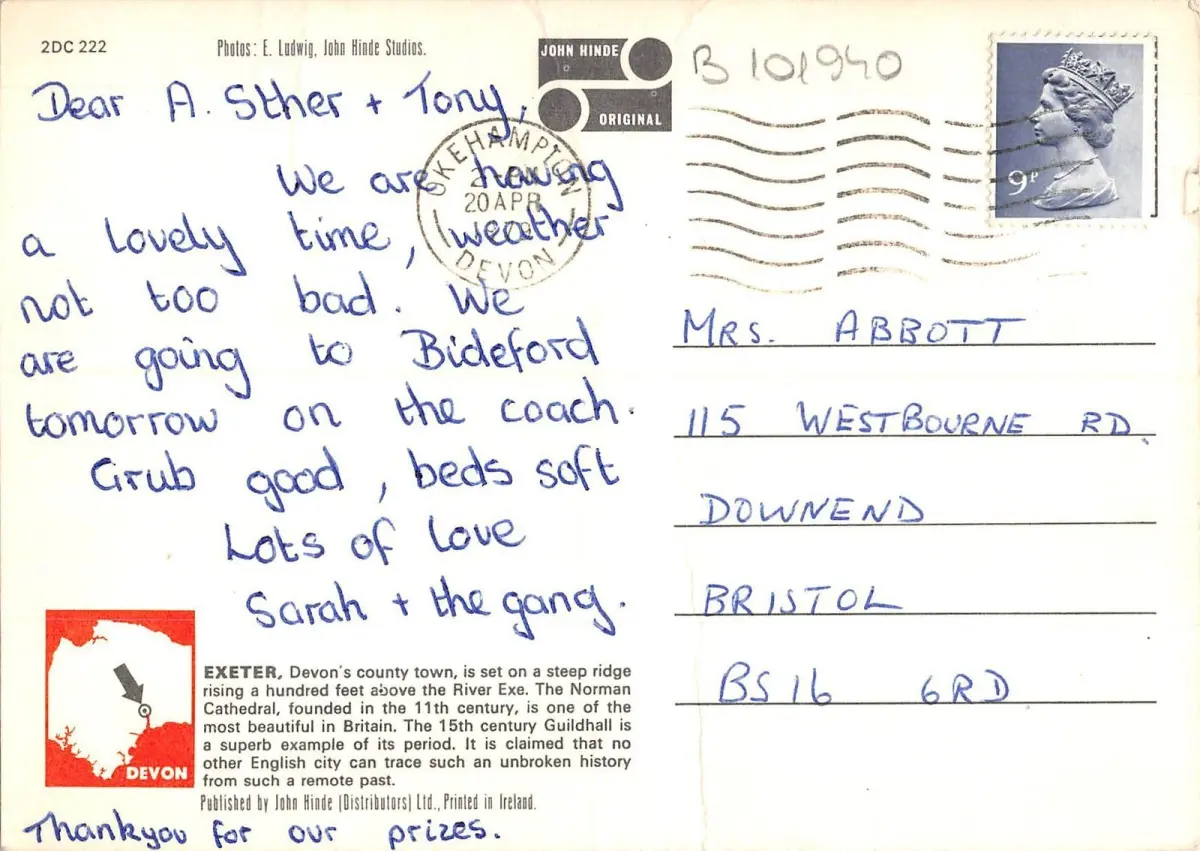 2DC 222
Photos: E. Ludwig, John Hinde Studios.
JOHN HINDE
ORIGINAL
B 101940
Dear A. Sther + Tony,
We are having
a lovely time, weather
not too bad. We
are going to Bideford
tomorrow on the coach.
Grub good, beds soft
Lots of love
Sarah + the gang.
OKEHAMPTON
20 APR
DEVON
9P
MRS. ABBOTT
115 WESTBOURNE RD.
DOWNEND
BRISTOL
BS16 6RD
DEVON
EXETER, Devon's county town, is set on a steep ridge
rising a hundred feet above the River Exe. The Norman
Cathedral, founded in the 11th century, is one of the
most beautiful in Britain. The 15th century Guildhall is
a superb example of its period. It is claimed that no
other English city can trace such an unbroken history
from such a remote past.
Published by John Hinde (Distributors) Ltd., Printed in Ireland.
Thankyou for our prizes.